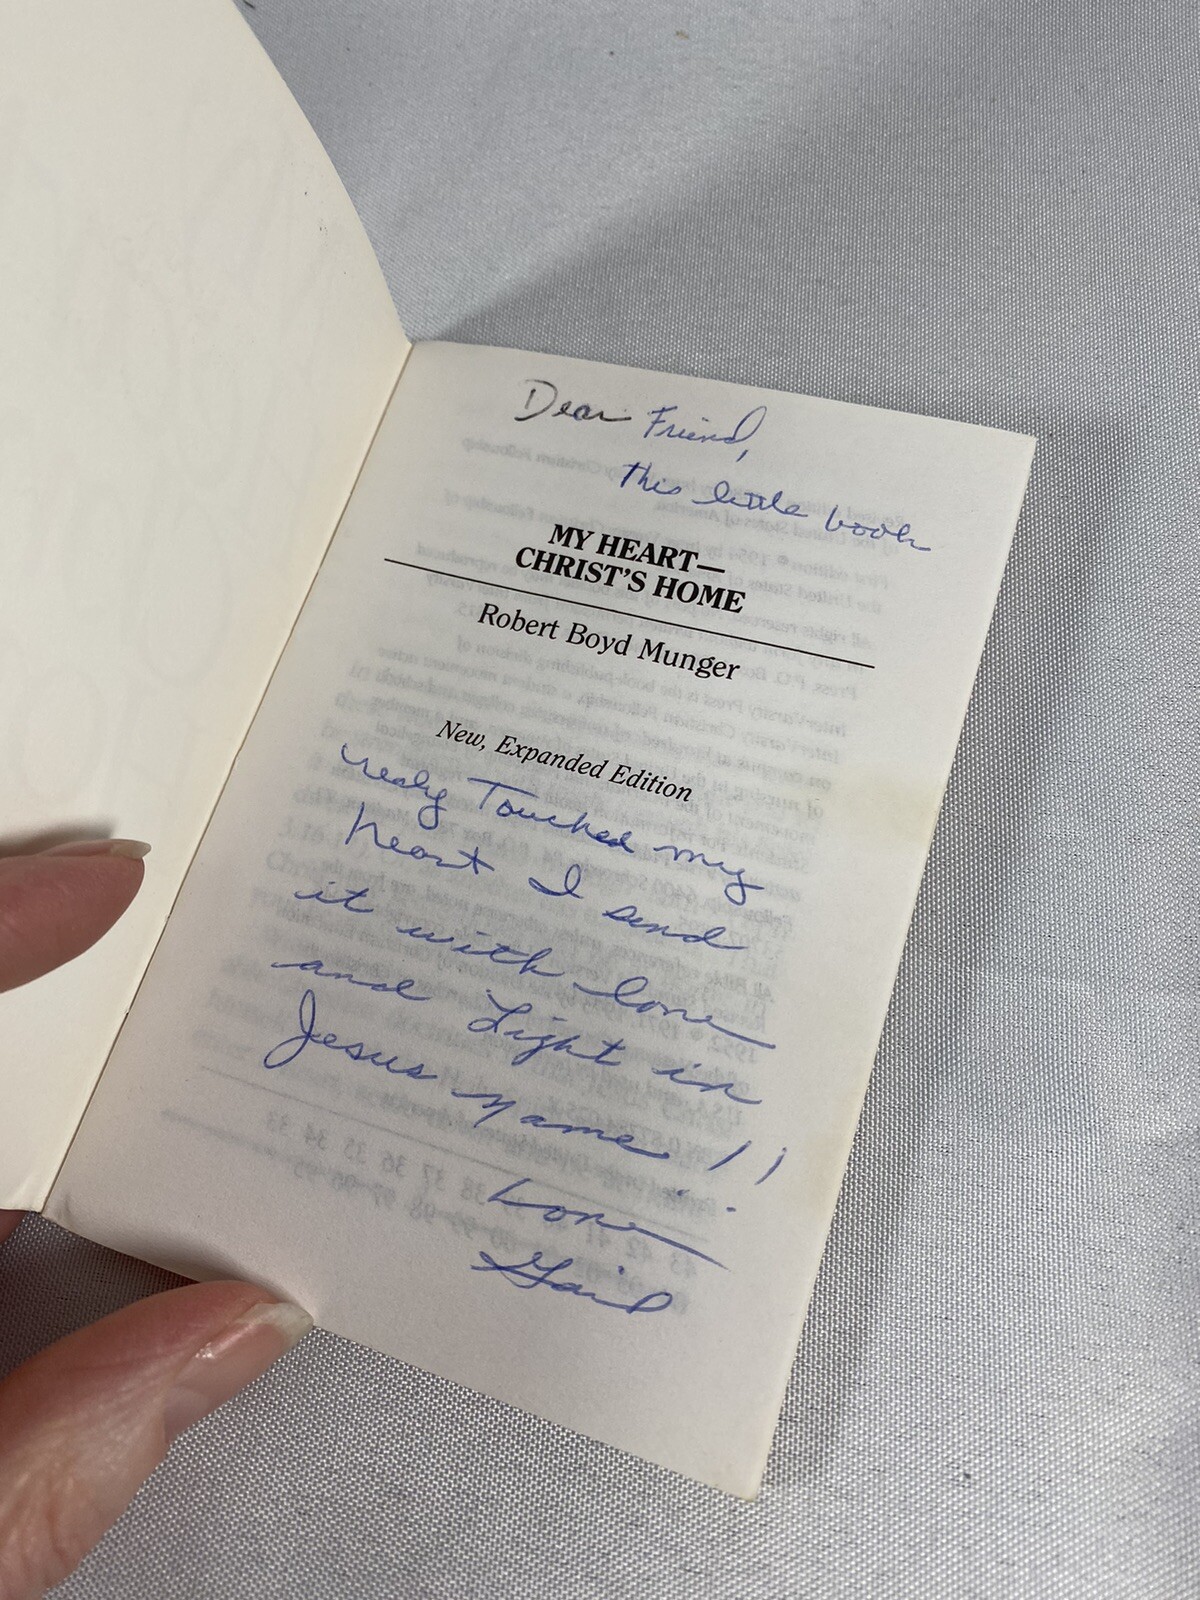 Dear Friend,
this little book
MY HEART—
CHRIST'S HOME
Robert Boyd Munger
New, Expanded Edition
realy Touched my
heart I send
it with love
and Light in
Jesus name!!
Love
Gail